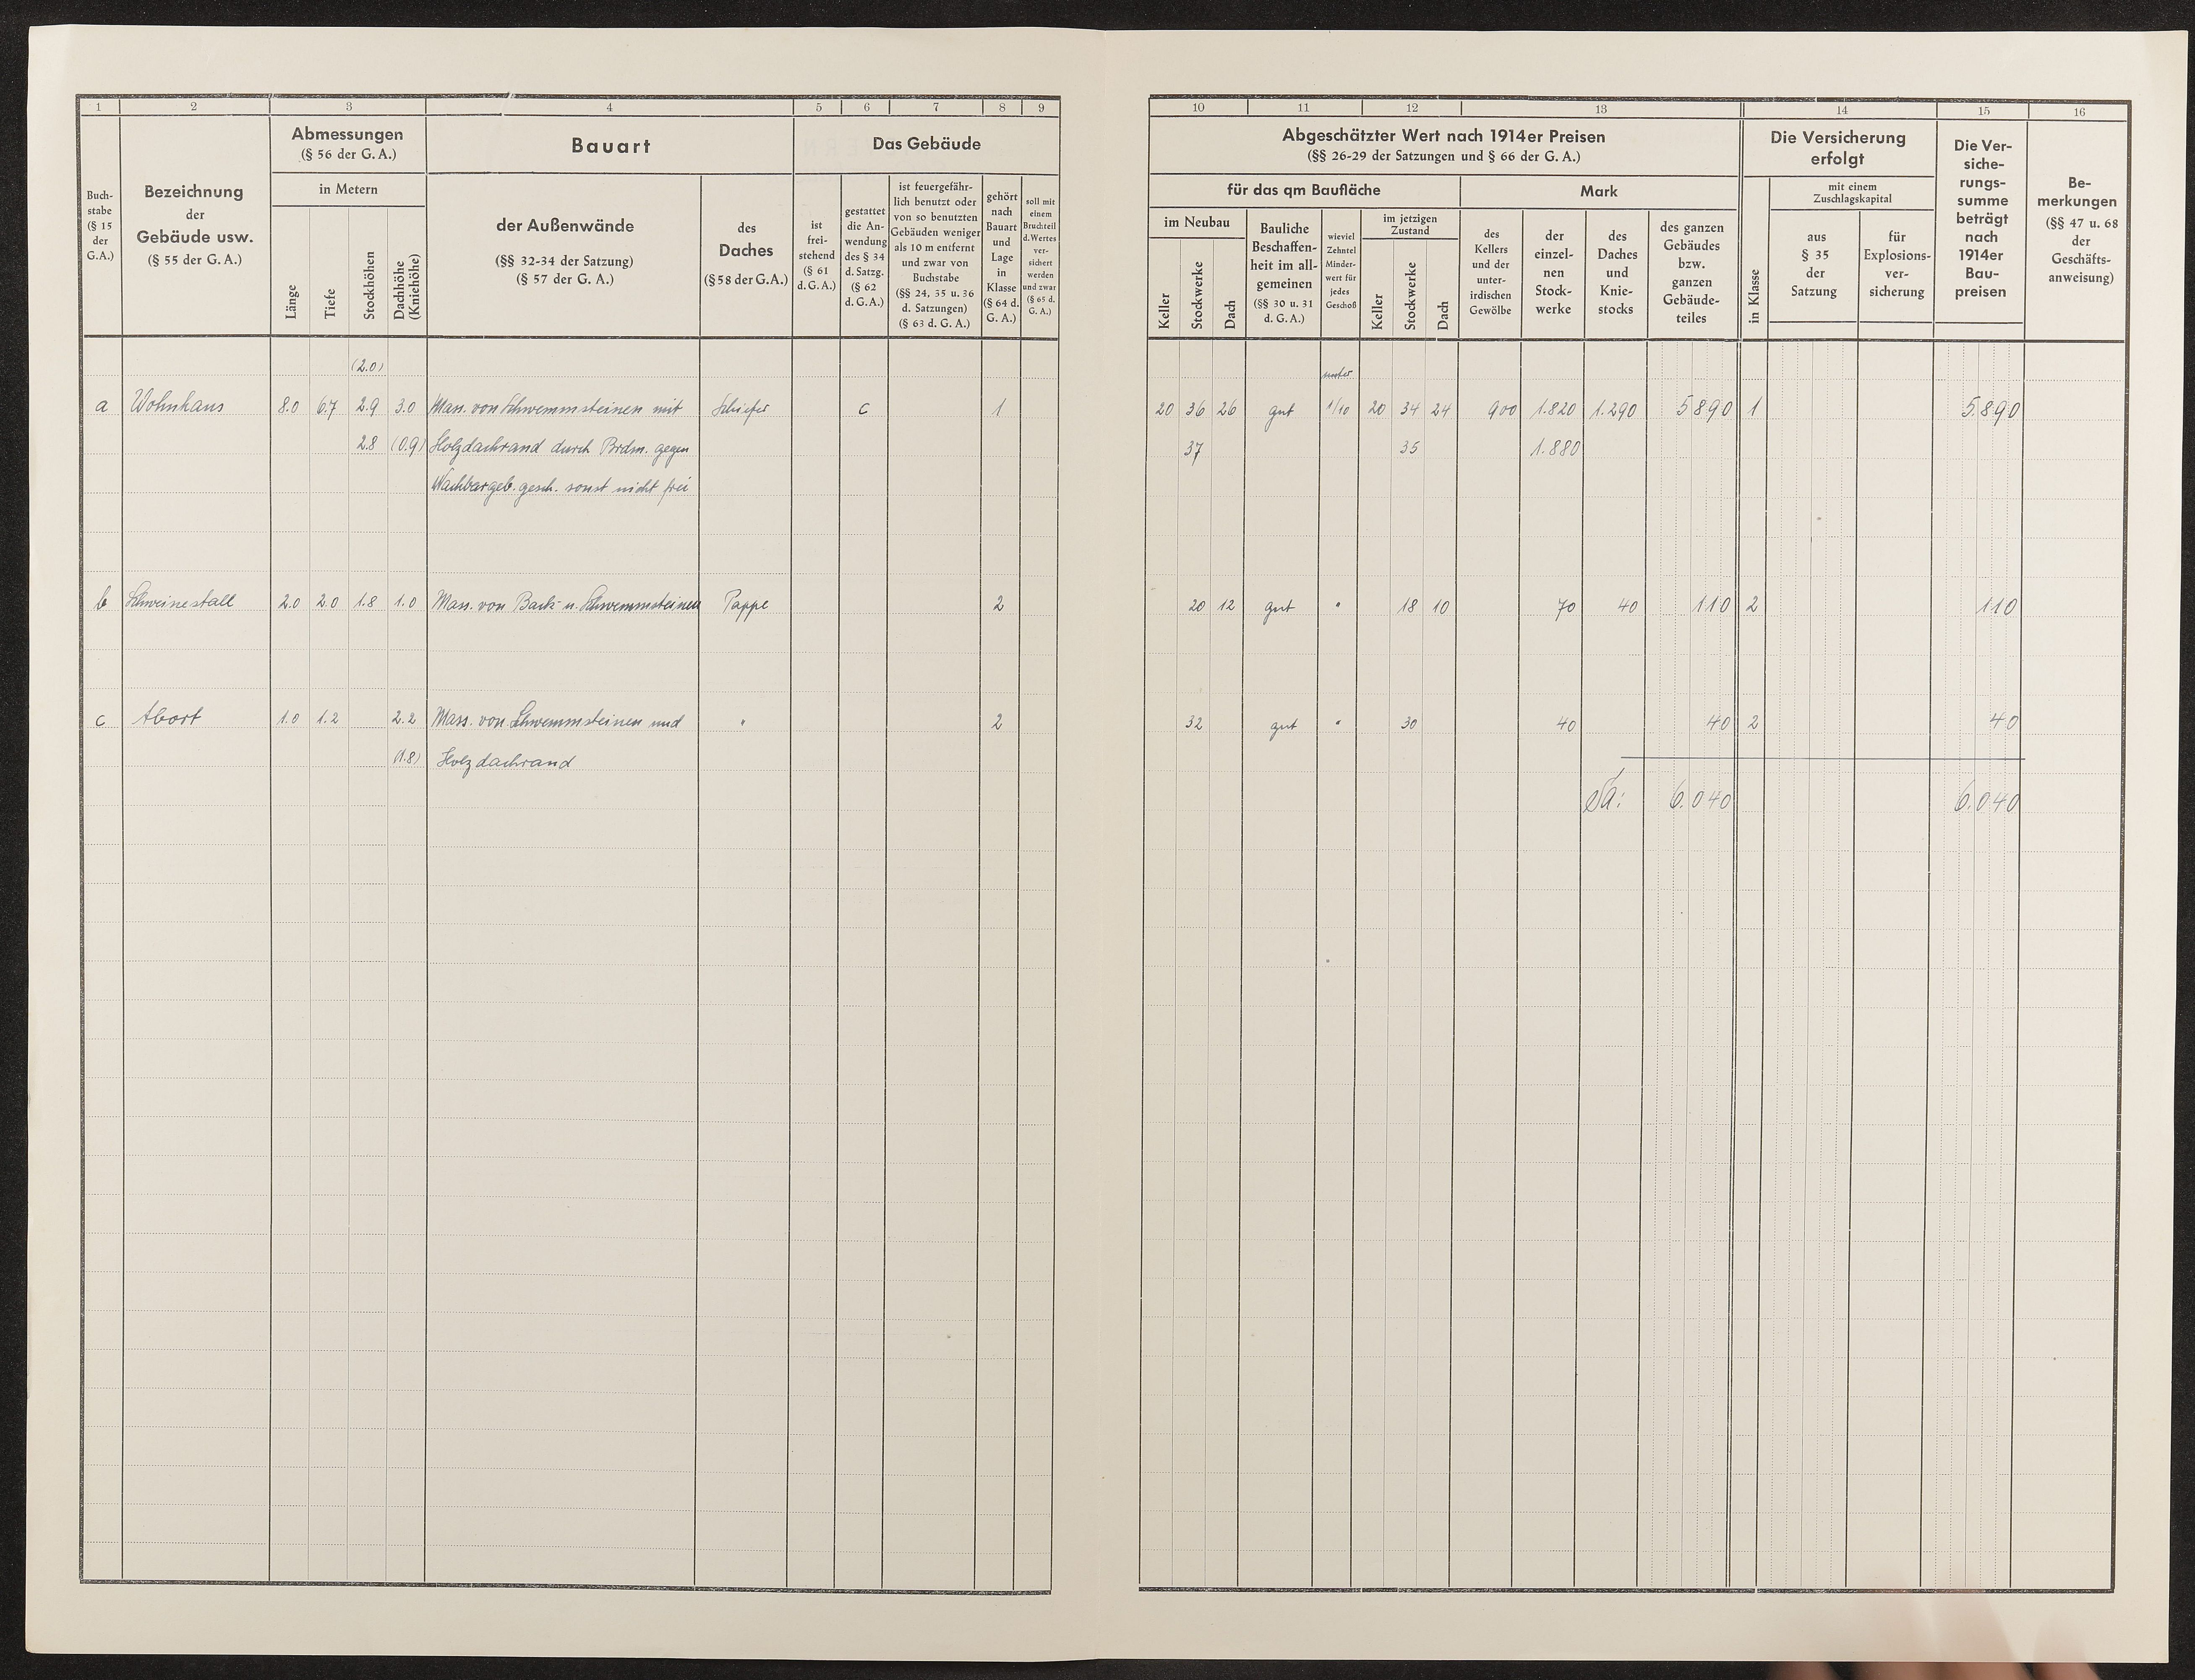 1 2 3 4 5 6 7 8 9
Buch-
stabe
(§ 15
der
G.A.)
Bezeichnung
der
Gebäude usw.
(§ 55 der G. A.)
Abmessungen
(§ 56 der G. A.)
in Metern
Länge
Tiefe
Stockhöhen
Dachhöhe
(Kniehöhe)
Bauart
der Außenwände
(§§ 32-34 der Satzung)
(§ 57 der G. A.)
des
Daches
(§ 58 der G.A.)
Das Gebäude
ist
frei-
stehend
(§ 61
d. G. A.)
gestattet
die An-
wendung
des § 34
d. Satzg.
(§ 62
d. G. A.)
ist feuergefähr-
lich benutzt oder
von so benutzten
Gebäuden weniger
als 10 m entfernt
und zwar von
Buchstabe
(§§ 24, 35 u. 36
d. Satzungen)
(§ 63 d. G. A.)
gehört
nach
Bauart
und
Lage
in
Klasse
(§ 64 d.
G. A.)
soll mit
einem
Bruchteil
d. Wertes
ver-
sichert
werden
und zwar
(§ 65 d.
G. A.)
(2.0)
a Wohnhaus 8.0 6.7 2.9 3.0 Mass. von Schwemmsteinen mit Schiefer c 1
2.8 (0.9) Holzdachrand durch Brdm. gegen
Nachbargeb. gesch. sonst nicht frei
b Schweinestall 2.0 2.0 1.8 1.0 Mass. von Back- u. Schwemmsteinen Pappe 2
c Abort 1.0 1.2 2.2 Mass. von Schwemmsteinen und " 2
(1.8) Holzdachrand
10 11 12 13 14 15 16
Abgeschätzter Wert nach 1914er Preisen
(§§ 26-29 der Satzungen und § 66 der G. A.)
für das qm Baufläche
im Neubau
Keller
Stockwerke
Dach
Bauliche
Beschaffen-
heit im all-
gemeinen
(§§ 30 u. 31
d. G. A.)
wieviel
Zehntel
Minder-
wert für
jedes
Geschoß
im jetzigen
Zustand
Keller
Stockwerke
Dach
Mark
des
Kellers
und der
unter-
irdischen
Gewölbe
der
einzel-
nen
Stock-
werke
des
Daches
und
Knie-
stocks
des ganzen
Gebäudes
bzw.
ganzen
Gebäude-
teiles
Die Versicherung
erfolgt
in Klasse
mit einem
Zuschlagskapital
aus
§ 35
der
Satzung
für
Explosions-
ver-
sicherung
Die Ver-
siche-
rungs-
summe
beträgt
nach
1914er
Bau-
preisen
Be-
merkungen
(§§ 47 u. 68
der
Geschäfts-
anweisung)
unter
20 36 26 gut 1/10 20 34 24 900 1.820 1.290 5890 1 5.890
37 35 1.880
20 12 gut " 18 10 70 40 110 2 110
32 gut " 30 40 40 2 40
Sa: 6.040 6.040